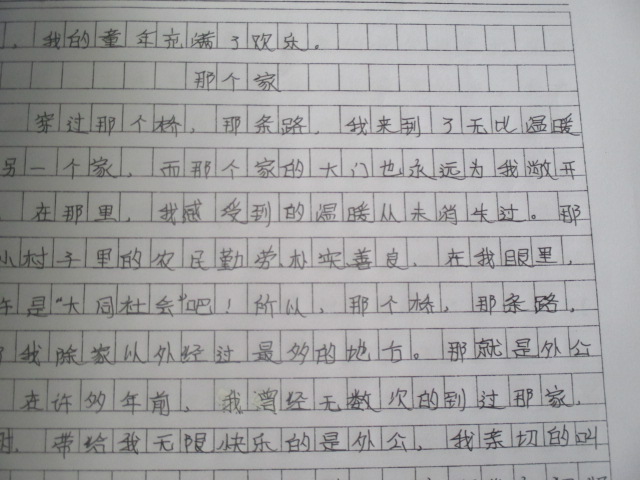 ，我的童年充满了欢乐。
那个家
穿过那个桥，那条路，我来到了无比温暖
另一个家，而那个家的大门也永远为我敞开
在那里，我感受到的温暖从未消失过。那
小村子里的农民勤劳朴实善良，在我眼里，
许是"大同社会"吧！所以，那个桥，那条路，
我除家以外经过最多的地方。那就是外公
在许多年前，我曾经无数次的到过那家，
时，带给我无限快乐的是外公，我亲切的叫